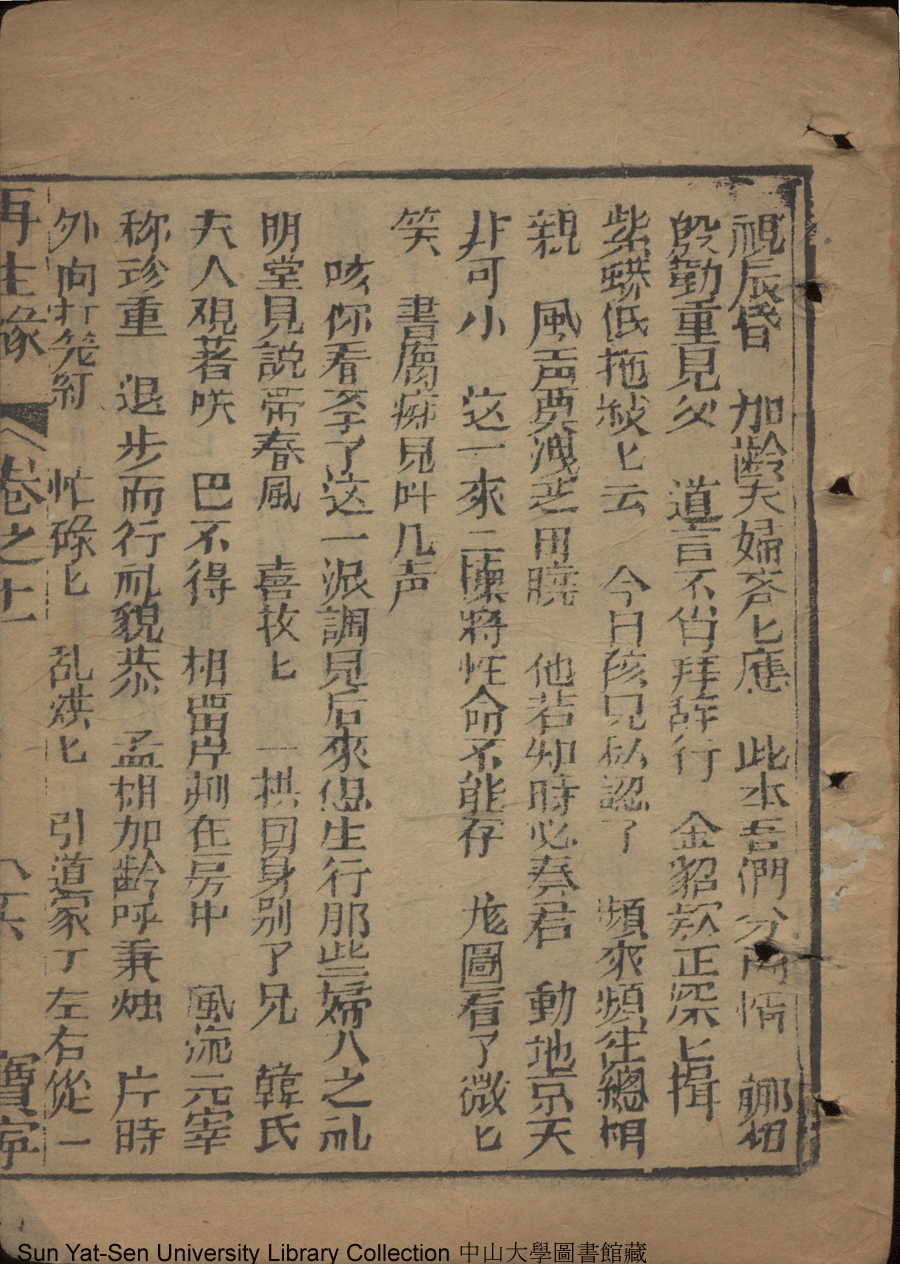 視辰昏　加齡夫婦齊匕應　此本吾們分内情　酈相
殷勤重見父　道言不肖拜辞行　金貂欵正深匕揖
紫蟒低拖綫匕云　今日孩兒私認了　頻來頻往總相
親　風声莫洩芝田曉　他若知時必奏君　動地京天
非可小　这一來　三陳將性命不能存　龙圖看了微匕
笑　書房痲見叫几声
咳你看李了这一派調見后來怎生行那些婦人之礼
明堂見説帶春風　喜孜匕　一拱回身别了兄　韓氏
夫人观著咲　巴不得　相畱片刺在房中　風流元宰
称珍重　退步而行礼貌恭　孟相加齡呼秉烛　片時
外向打笼紅　忙碌匕　乱烘匕　引道家丁左右從　一
再生緣　卷之十一　八六　寶寧
Sun Yat-Sen University Library Collection 中山大學圖書館藏